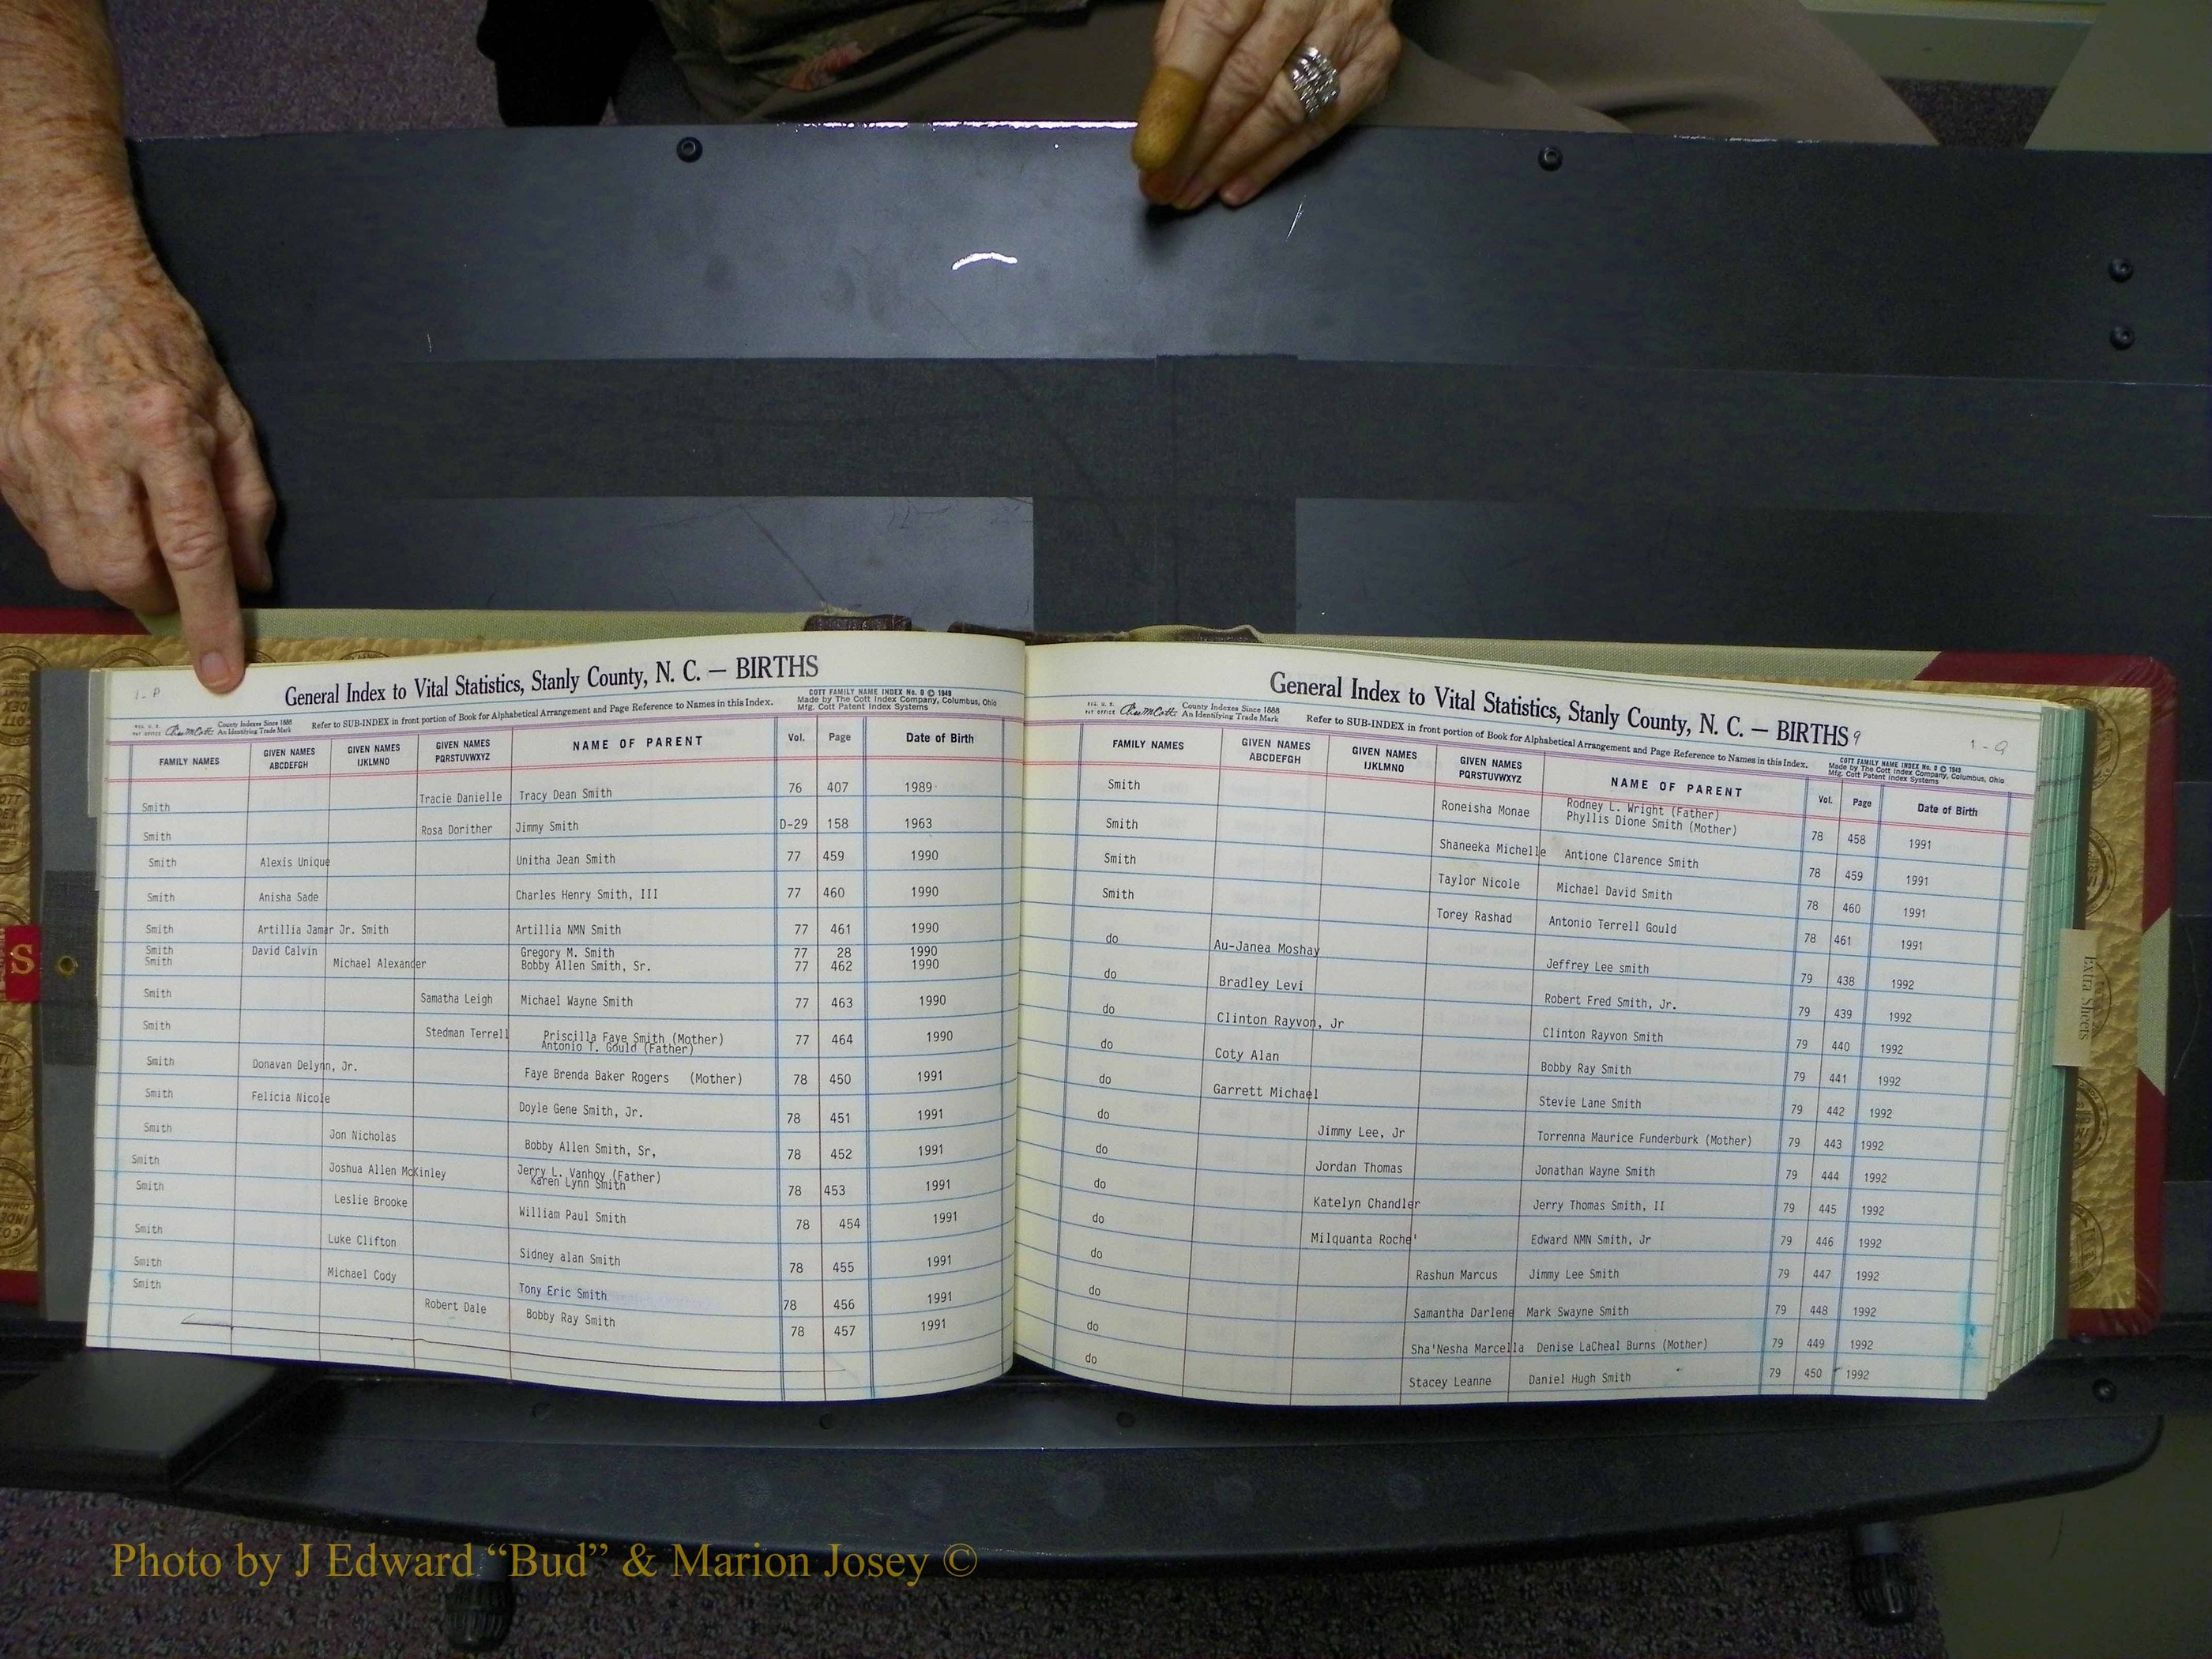 1-P
General Index to Vital Statistics, Stanly County, N. C. — BIRTHS
REG. U. S. PAT OFFICE County Indexes Since 1888 An Identifying Trade Mark Refer to SUB-INDEX in front portion of Book for Alphabetical Arrangement and Page Reference to Names in this Index. COTT FAMILY NAME INDEX No. 9 © 1949
Made by The Cott Index Company, Columbus, Ohio
Mfg. Cott Patent Index Systems
FAMILY NAMES GIVEN NAMES ABCDEFGH GIVEN NAMES IJKLMNO GIVEN NAMES PQRSTUVWXYZ NAME OF PARENT Vol. Page Date of Birth
Smith Tracie Danielle Tracy Dean Smith 76 407 1989
Smith Rosa Dorither Jimmy Smith D-29 158 1963
Smith Alexis Unique Unitha Jean Smith 77 459 1990
Smith Anisha Sade Charles Henry Smith, III 77 460 1990
Smith Artillia Jamar Jr. Smith Artillia NMN Smith 77 461 1990
Smith David Calvin Gregory M. Smith 77 28 1990
Smith Michael Alexander Bobby Allen Smith, Sr. 77 462 1990
Smith Samatha Leigh Michael Wayne Smith 77 463 1990
Smith Stedman Terrell Priscilla Faye Smith (Mother) 77 464 1990
Antonio T. Gould (Father)
Smith Donavan Delynn, Jr. Faye Brenda Baker Rogers (Mother) 78 450 1991
Smith Felicia Nicole Doyle Gene Smith, Jr. 78 451 1991
Smith Jon Nicholas Bobby Allen Smith, Sr, 78 452 1991
Smith Joshua Allen McKinley Jerry L. Vanhoy (Father) 78 453 1991
Karen Lynn Smith
Smith Leslie Brooke William Paul Smith 78 454 1991
Smith Luke Clifton Sidney alan Smith 78 455 1991
Smith Michael Cody Tony Eric Smith 78 456 1991
Smith Robert Dale Bobby Ray Smith 78 457 1991
General Index to Vital Statistics, Stanly County, N. C. — BIRTHS 9
1-Q
REG. U. S. PAT OFFICE County Indexes Since 1888 An Identifying Trade Mark Refer to SUB-INDEX in front portion of Book for Alphabetical Arrangement and Page Reference to Names in this Index. COTT FAMILY NAME INDEX No. 9 © 1949
Made by The Cott Index Company, Columbus, Ohio
Mfg. Cott Patent Index Systems
FAMILY NAMES GIVEN NAMES ABCDEFGH GIVEN NAMES IJKLMNO GIVEN NAMES PQRSTUVWXYZ NAME OF PARENT Vol. Page Date of Birth
Smith Roneisha Monae Rodney L. Wright (Father) 78 458 1991
Phyllis Dione Smith (Mother)
Smith Shaneeka Michelle Antione Clarence Smith 78 459 1991
Smith Taylor Nicole Michael David Smith 78 460 1991
Smith Torey Rashad Antonio Terrell Gould 78 461 1991
do Au-Janea Moshay Jeffrey Lee smith 79 438 1992
do Bradley Levi Robert Fred Smith, Jr. 79 439 1992
do Clinton Rayvon, Jr Clinton Rayvon Smith 79 440 1992
do Coty Alan Bobby Ray Smith 79 441 1992
do Garrett Michael Stevie Lane Smith 79 442 1992
do Jimmy Lee, Jr Torrenna Maurice Funderburk (Mother) 79 443 1992
do Jordan Thomas Jonathan Wayne Smith 79 444 1992
do Katelyn Chandler Jerry Thomas Smith, II 79 445 1992
do Milquanta Roche' Edward NMN Smith, Jr 79 446 1992
do Rashun Marcus Jimmy Lee Smith 79 447 1992
do Samantha Darlene Mark Swayne Smith 79 448 1992
do Sha'Nesha Marcella Denise LaCheal Burns (Mother) 79 449 1992
do Stacey Leanne Daniel Hugh Smith 79 450 1992
S
Extra Sheets
Photo by J Edward “Bud” & Marion Josey ©